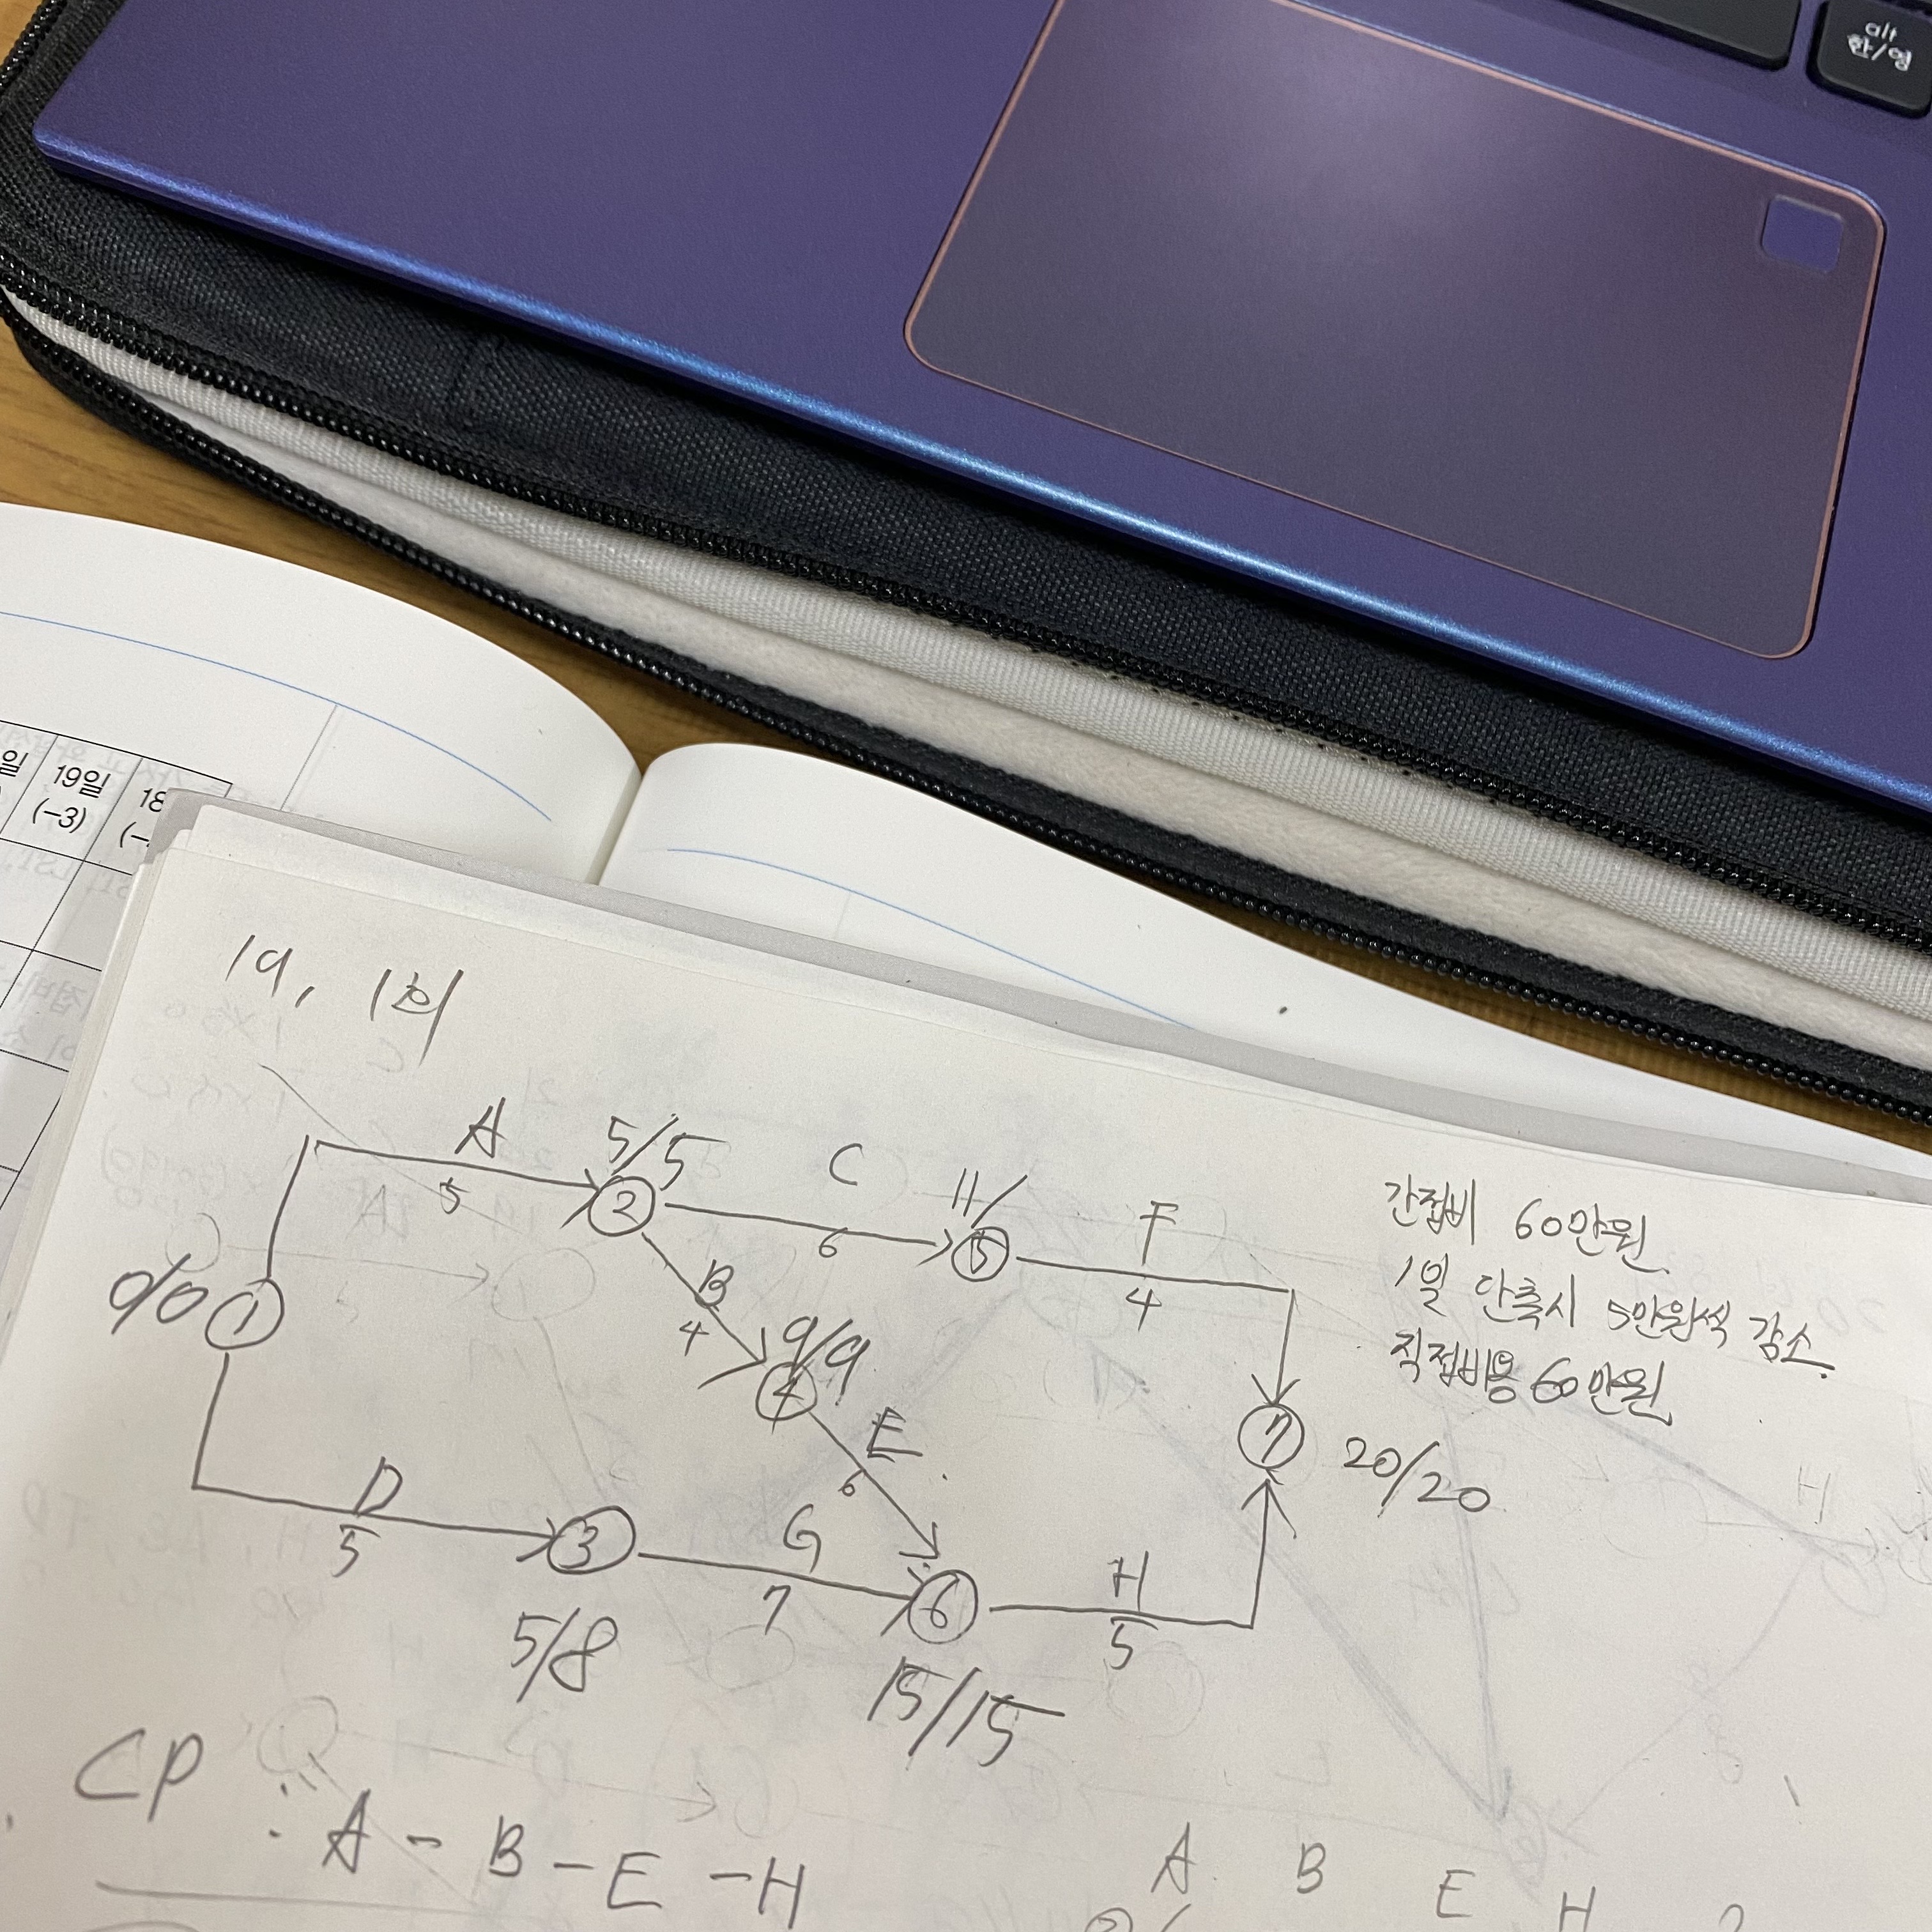 alt
한/영
일
19일
18
(-3)
(-
19, 1회
A
5/5
C
11/
F
5
2
6
5
4
0/0
1
B
4
9/9
4
E
6
7
20/20
D
5
3
G
7
6
H
5
5/8
15/15
간접비 60만원
1일 단축시 5만원씩 감소.
직접비용 60만원
CP : A - B - E - H
A. B E H